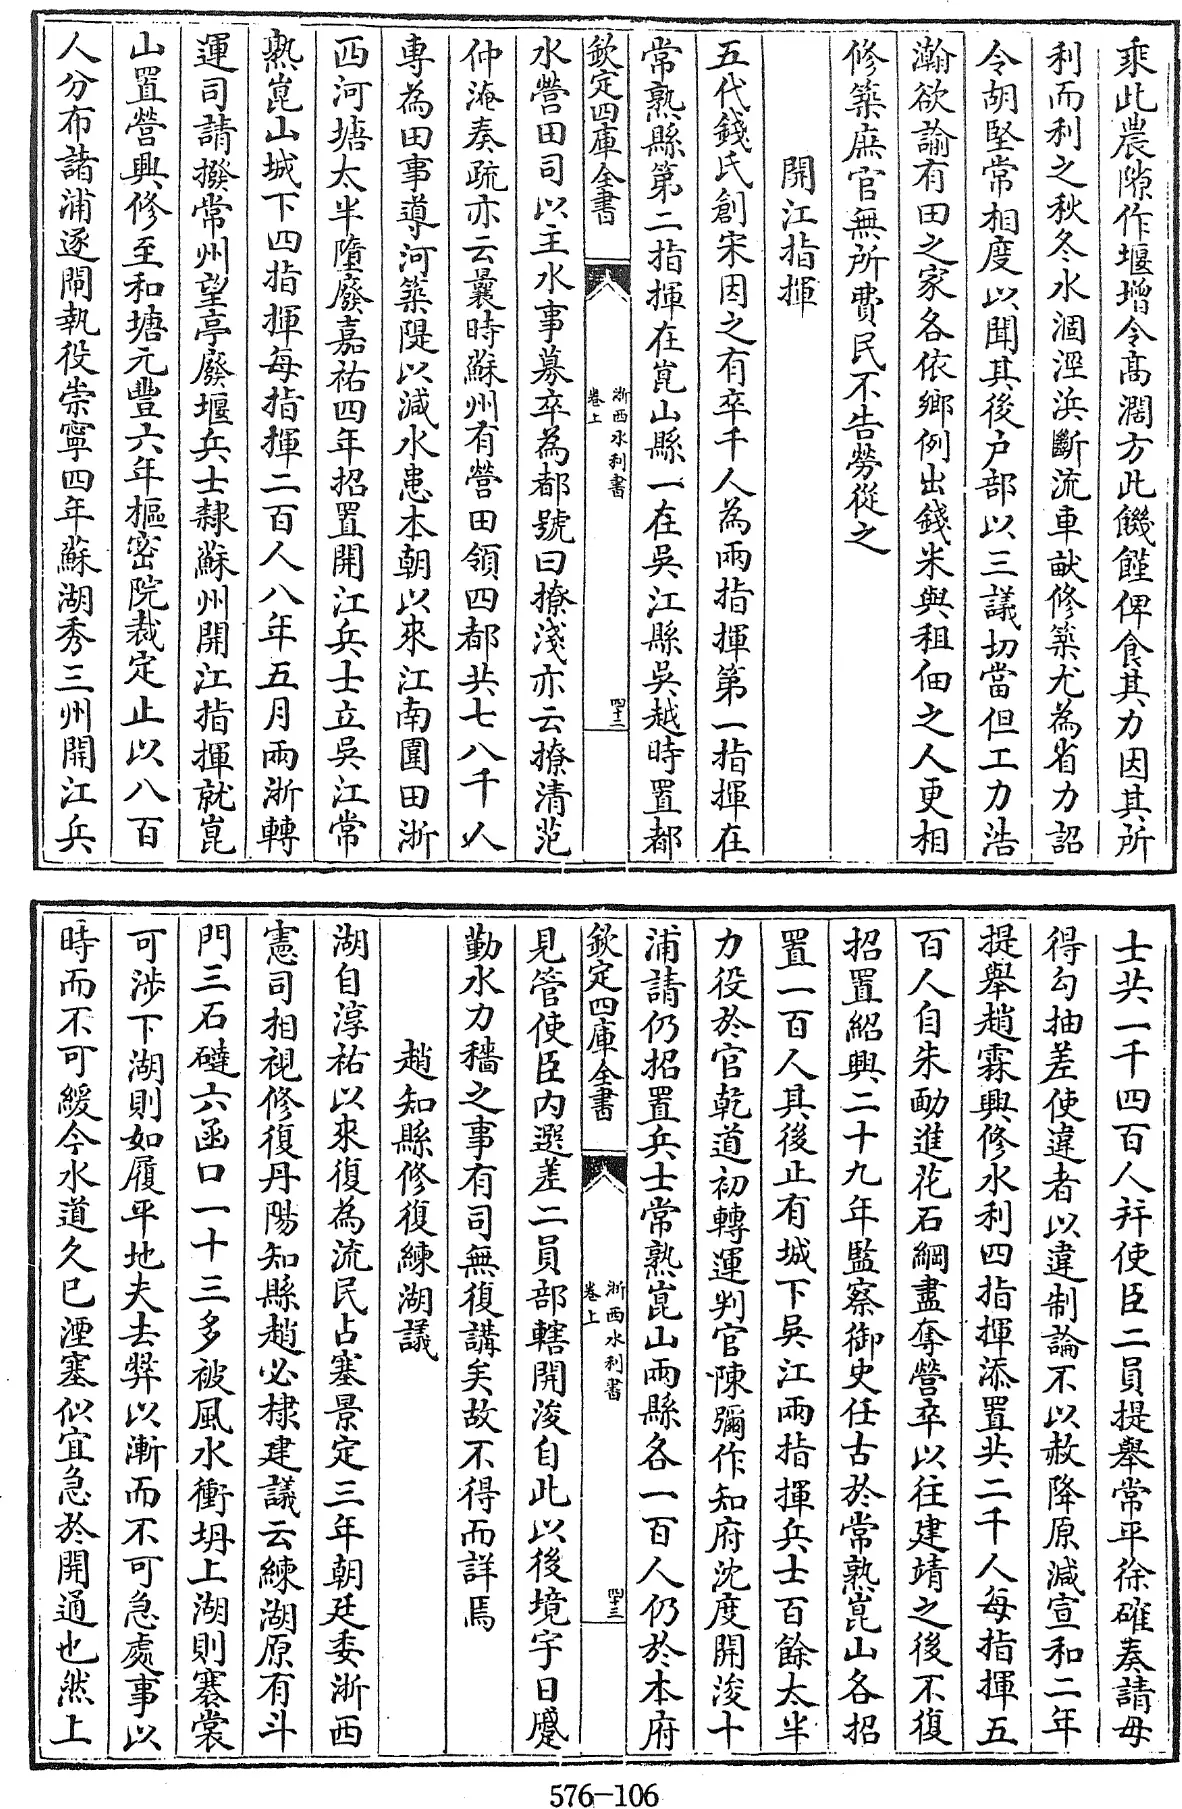 乘此農隙作堰增令高濶方此饑饉俾食其力因其所
利而利之秋冬水涸涇浜斷流車畎修築尤為省力詔
令胡堅常相度以聞其後户部以三議切當但工力浩
瀚欲諭有田之家各依鄉例出錢米與租佃之人更相
修築庶官無所費民不告勞從之
開江指揮
五代錢氏創宋因之有卒千人為兩指揮第一指揮在
常熟縣第二指揮在崑山縣一在吳江縣吳越時置都
欽定四庫全書
浙西水利書
卷上
四十二
水營田司以主水事募卒為都號曰撩淺亦云撩清范
仲淹奏疏亦云曩時蘇州有營田領四都共七八千人
専為田事導河築隄以減水患本朝以來江南圍田浙
西河塘太半隳廢嘉祐四年招置開江兵士立吳江常
熟崑山城下四指揮每指揮二百人八年五月兩浙轉
運司請撥常州望亭廢堰兵士隸蘇州開江指揮就崑
山置營興修至和塘元豐六年樞密院裁定止以八百
人分布諸浦逐閘執役崇寧四年蘇湖秀三州開江兵
士共一千四百人并使臣二員提舉常平徐確奏請毋
得勾抽差使違者以違制論不以赦降原減宣和二年
提舉趙霖興修水利四指揮添置共二千人每指揮五
百人自朱勔進花石綱盡奪營卒以往建靖之後不復
招置紹興二十九年監察御史任古於常熟崑山各招
置一百人其後止有城下吳江兩指揮兵士百餘太半
力役於官乾道初轉運判官陳彌作知府沈度開浚十
浦請仍招置兵士常熟崑山兩縣各一百人仍於本府
欽定四庫全書
浙西水利書
卷上
四十三
見管使臣内選差二員部轄開浚自此以後境宇日蹙
勤水力穡之事有司無復講矣故不得而詳焉
趙知縣修復練湖議
湖自淳祐以來復為流民占塞景定三年朝廷委浙西
憲司相視修復丹陽知縣趙必棣建議云練湖原有斗
門三石䃮六函口一十三多被風水衝坍上湖則褰裳
可涉下湖則如履平地夫去弊以漸而不可急處事以
時而不可緩今水道久已湮塞似宜急於開通也然上
576-106